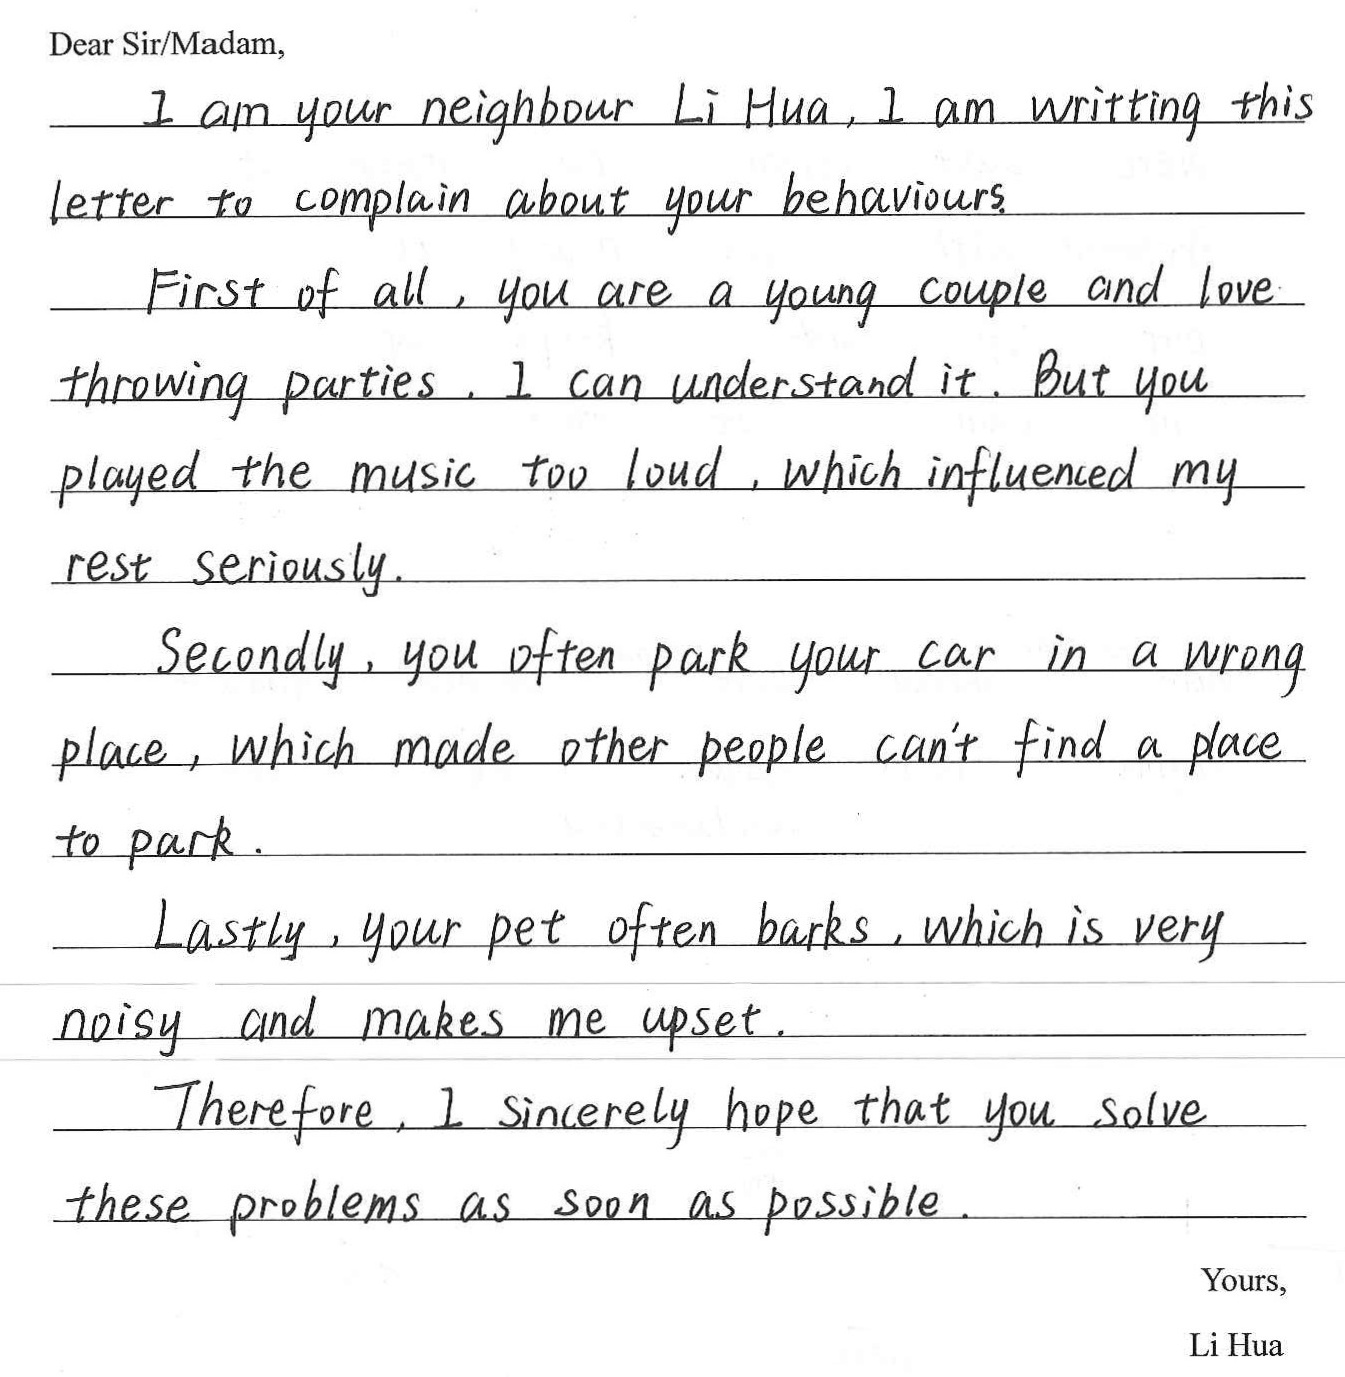 Dear Sir/Madam,
I am your neighbour Li Hua, I am writting this
letter to complain about your behaviours.
First of all, you are a young couple and love
throwing parties. I can understand it. But you
played the music too loud, which influenced my
rest seriously.
Secondly, you often park your car in a wrong
place, which made other people can't find a place
to park.
Lastly, your pet often barks, which is very
noisy and makes me upset.
Therefore, I sincerely hope that you solve
these problems as soon as possible.
Yours,
Li Hua